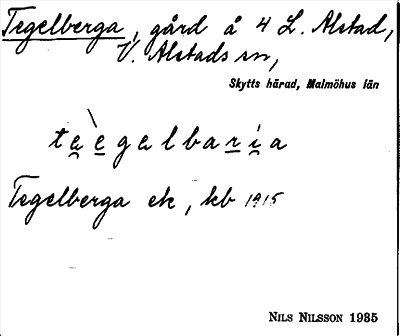 Tegelberga, gård å 4 L. Alstad,
V. Alstads sn,
Skytts härad, Malmöhus län
tae̱gɐlbari̯a
Tegelberga ek, kb 1915
NILS NILSSON 1935